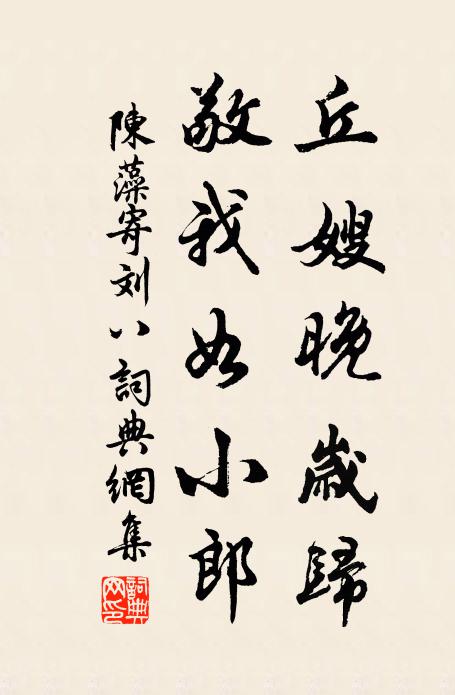 丘嫂晚歲歸
敬我如小郎
陳藻寄刘八詞典網集
詞典网印